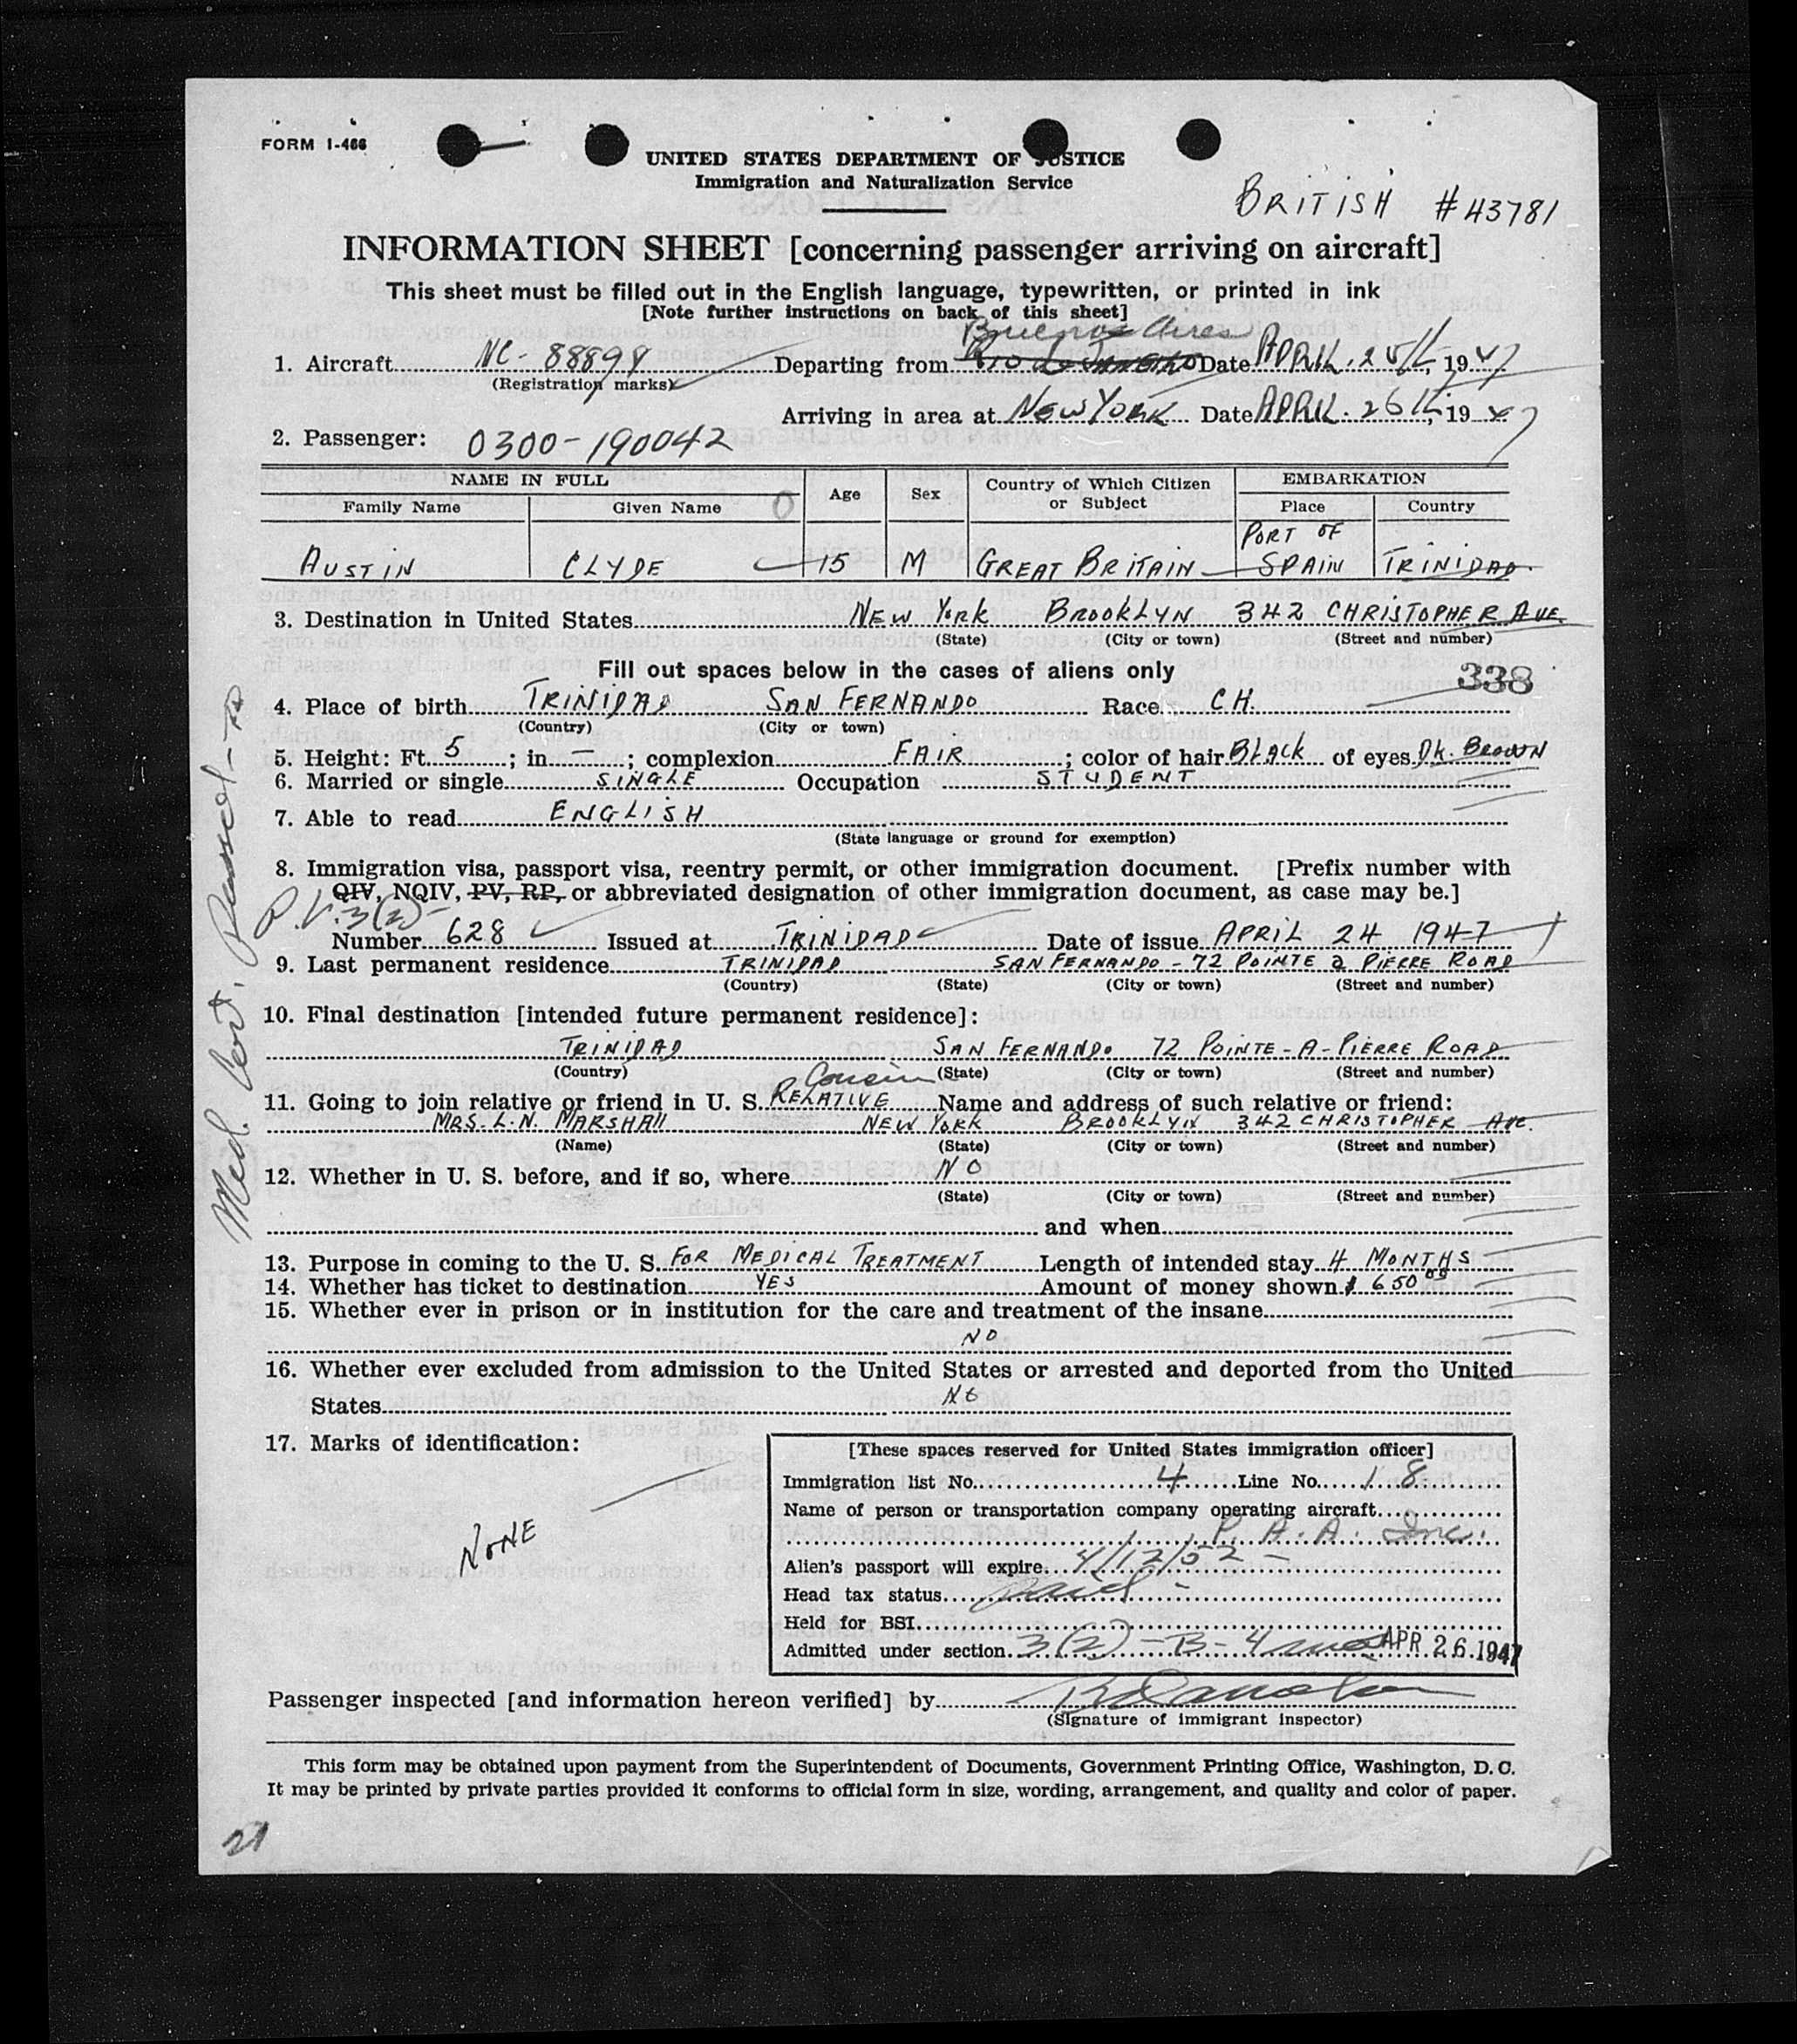 FORM I-466
UNITED STATES DEPARTMENT OF JUSTICE
Immigration and Naturalization Service
BRITISH #43781
INFORMATION SHEET [concerning passenger arriving on aircraft]
This sheet must be filled out in the English language, typewritten, or printed in ink
[Note further instructions on back of this sheet]
Buenos Aires
1. Aircraft NC-88898 Departing from Rio de Janeiro Date APRIL. 25th, 1947
(Registration marks)
Arriving in area at NEW YORK Date APRIL. 26th, 1947
2. Passenger: 0300-190042
NAME IN FULL Age Sex Country of Which Citizen or Subject EMBARKATION
Family Name Given Name 0 Place Country
AUSTIN CLYDE 15 M GREAT BRITAIN PORT OF SPAIN TRINIDAD.
3. Destination in United States NEW YORK BROOKLYN 342 CHRISTOPHER AVE.
(State) (City or town) (Street and number)
Fill out spaces below in the cases of aliens only
338
4. Place of birth TRINIDAD SAN FERNANDO Race CH.
(Country) (City or town)
5. Height: Ft. 5; in —; complexion FAIR; color of hair BLACK of eyes DK. BROWN
6. Married or single SINGLE Occupation STUDENT
7. Able to read ENGLISH
(State language or ground for exemption)
8. Immigration visa, passport visa, reentry permit, or other immigration document. [Prefix number with
QIV, NQIV, PV, RP, or abbreviated designation of other immigration document, as case may be.]
P.V. 3(2)-
Number 628 Issued at TRINIDAD Date of issue APRIL 24 1947
9. Last permanent residence TRINIDAD SAN FERNANDO - 72 POINTE a PIERRE ROAD
(Country) (State) (City or town) (Street and number)
10. Final destination [intended future permanent residence]:
TRINIDAD SAN FERNANDO 72 POINTE-A-PIERRE ROAD
(Country) (State) (City or town) (Street and number)
Cousin
11. Going to join relative or friend in U. S. RELATIVE Name and address of such relative or friend:
MRS. L.N. MARSHALL NEW YORK BROOKLYN 342 CHRISTOPHER AVE.
(Name) (State) (City or town) (Street and number)
12. Whether in U. S. before, and if so, where NO
(State) (City or town) (Street and number)
and when
13. Purpose in coming to the U. S. FOR MEDICAL TREATMENT Length of intended stay 4 MONTHS
14. Whether has ticket to destination YES Amount of money shown $ 650.00
15. Whether ever in prison or in institution for the care and treatment of the insane
NO
16. Whether ever excluded from admission to the United States or arrested and deported from the United
States NO
17. Marks of identification:
NONE
[These spaces reserved for United States immigration officer]
Immigration list No. 4 Line No. 18
Name of person or transportation company operating aircraft
P. A. A. Inc.
Alien's passport will expire 4/12/52 -
Head tax status paid -
Held for BSI
Admitted under section 3(2)-B-4 mos APR 26 1947
Passenger inspected [and information hereon verified] by
(Signature of immigrant inspector)
This form may be obtained upon payment from the Superintendent of Documents, Government Printing Office, Washington, D. C.
It may be printed by private parties provided it conforms to official form in size, wording, arrangement, and quality and color of paper.
21
Med. Cert.